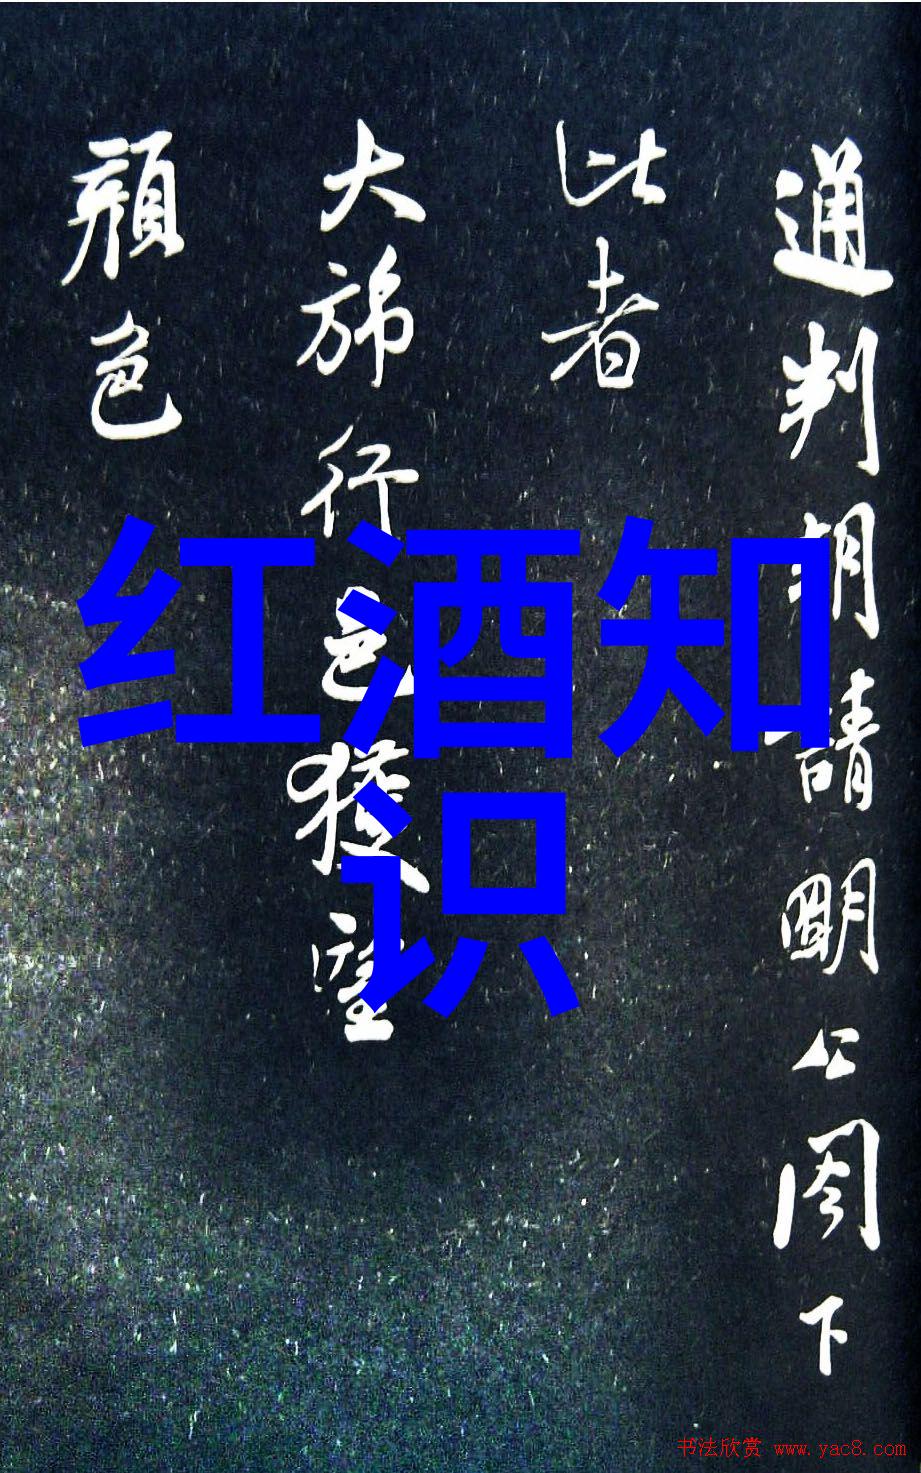 通判胡請明公閣下
此者
大旆行邑獲望
顏色
红酒知
识
书法欣赏 www.yac8.com